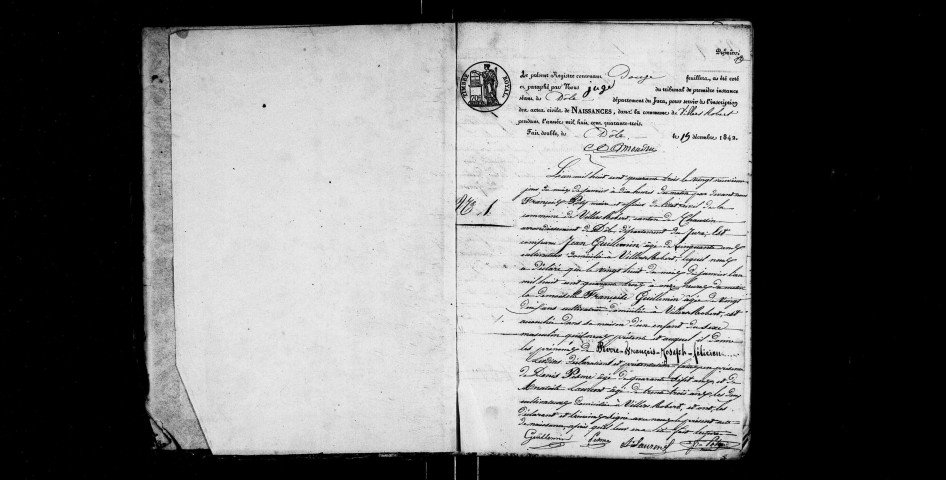 Premier
TIMBRE ROYAL
Le présent Registre contenant Douze feuillets, a été coté
et paraphé par Nous juge du tribunal de première instance
séant à Dôle département du Jura, pour servir à l'inscription
des actes civils de NAISSANCES, dans la commune de Villers Robert
pendant l'année mil huit cent quarante-trois.
Fait double, à Dôle le 15 décembre 1842.
L'an mil huit cent quarante trois le vingt neuvième
jour du mois de janvier à dix heures du matin par devant nous
François maire et officier de l'état civil de la
commune de Villers Robert, canton de Chaussin
arrondissement de Dôle, département du Jura, est
comparu Jean Guillemin âgé de cinquante ans
cultivateur domicilié à Villers Robert, lequel nous
a déclaré que le vingt huit du mois de janvier l'an
mil huit cent quarante trois à onze heures du matin
la demoiselle Françoise Guillemin âgée de vingt
ans cultivatrice domiciliée à Villers Robert, est
accouchée dans sa maison d'un enfant du sexe
masculin qu'il nous présente et auquel il donne
les prénoms de Pierre-François-Joseph-Félicien
déclaration et présentation faites en présence
de Denis âgé de quarante sept ans et de
Laurent âgé de trente trois ans, les deux
cultivateurs domiciliés à Villers Robert, et ont, les
déclarant et témoins signé avec nous le présent acte
de naissance, après que lecture leur a été faite
Guillemin